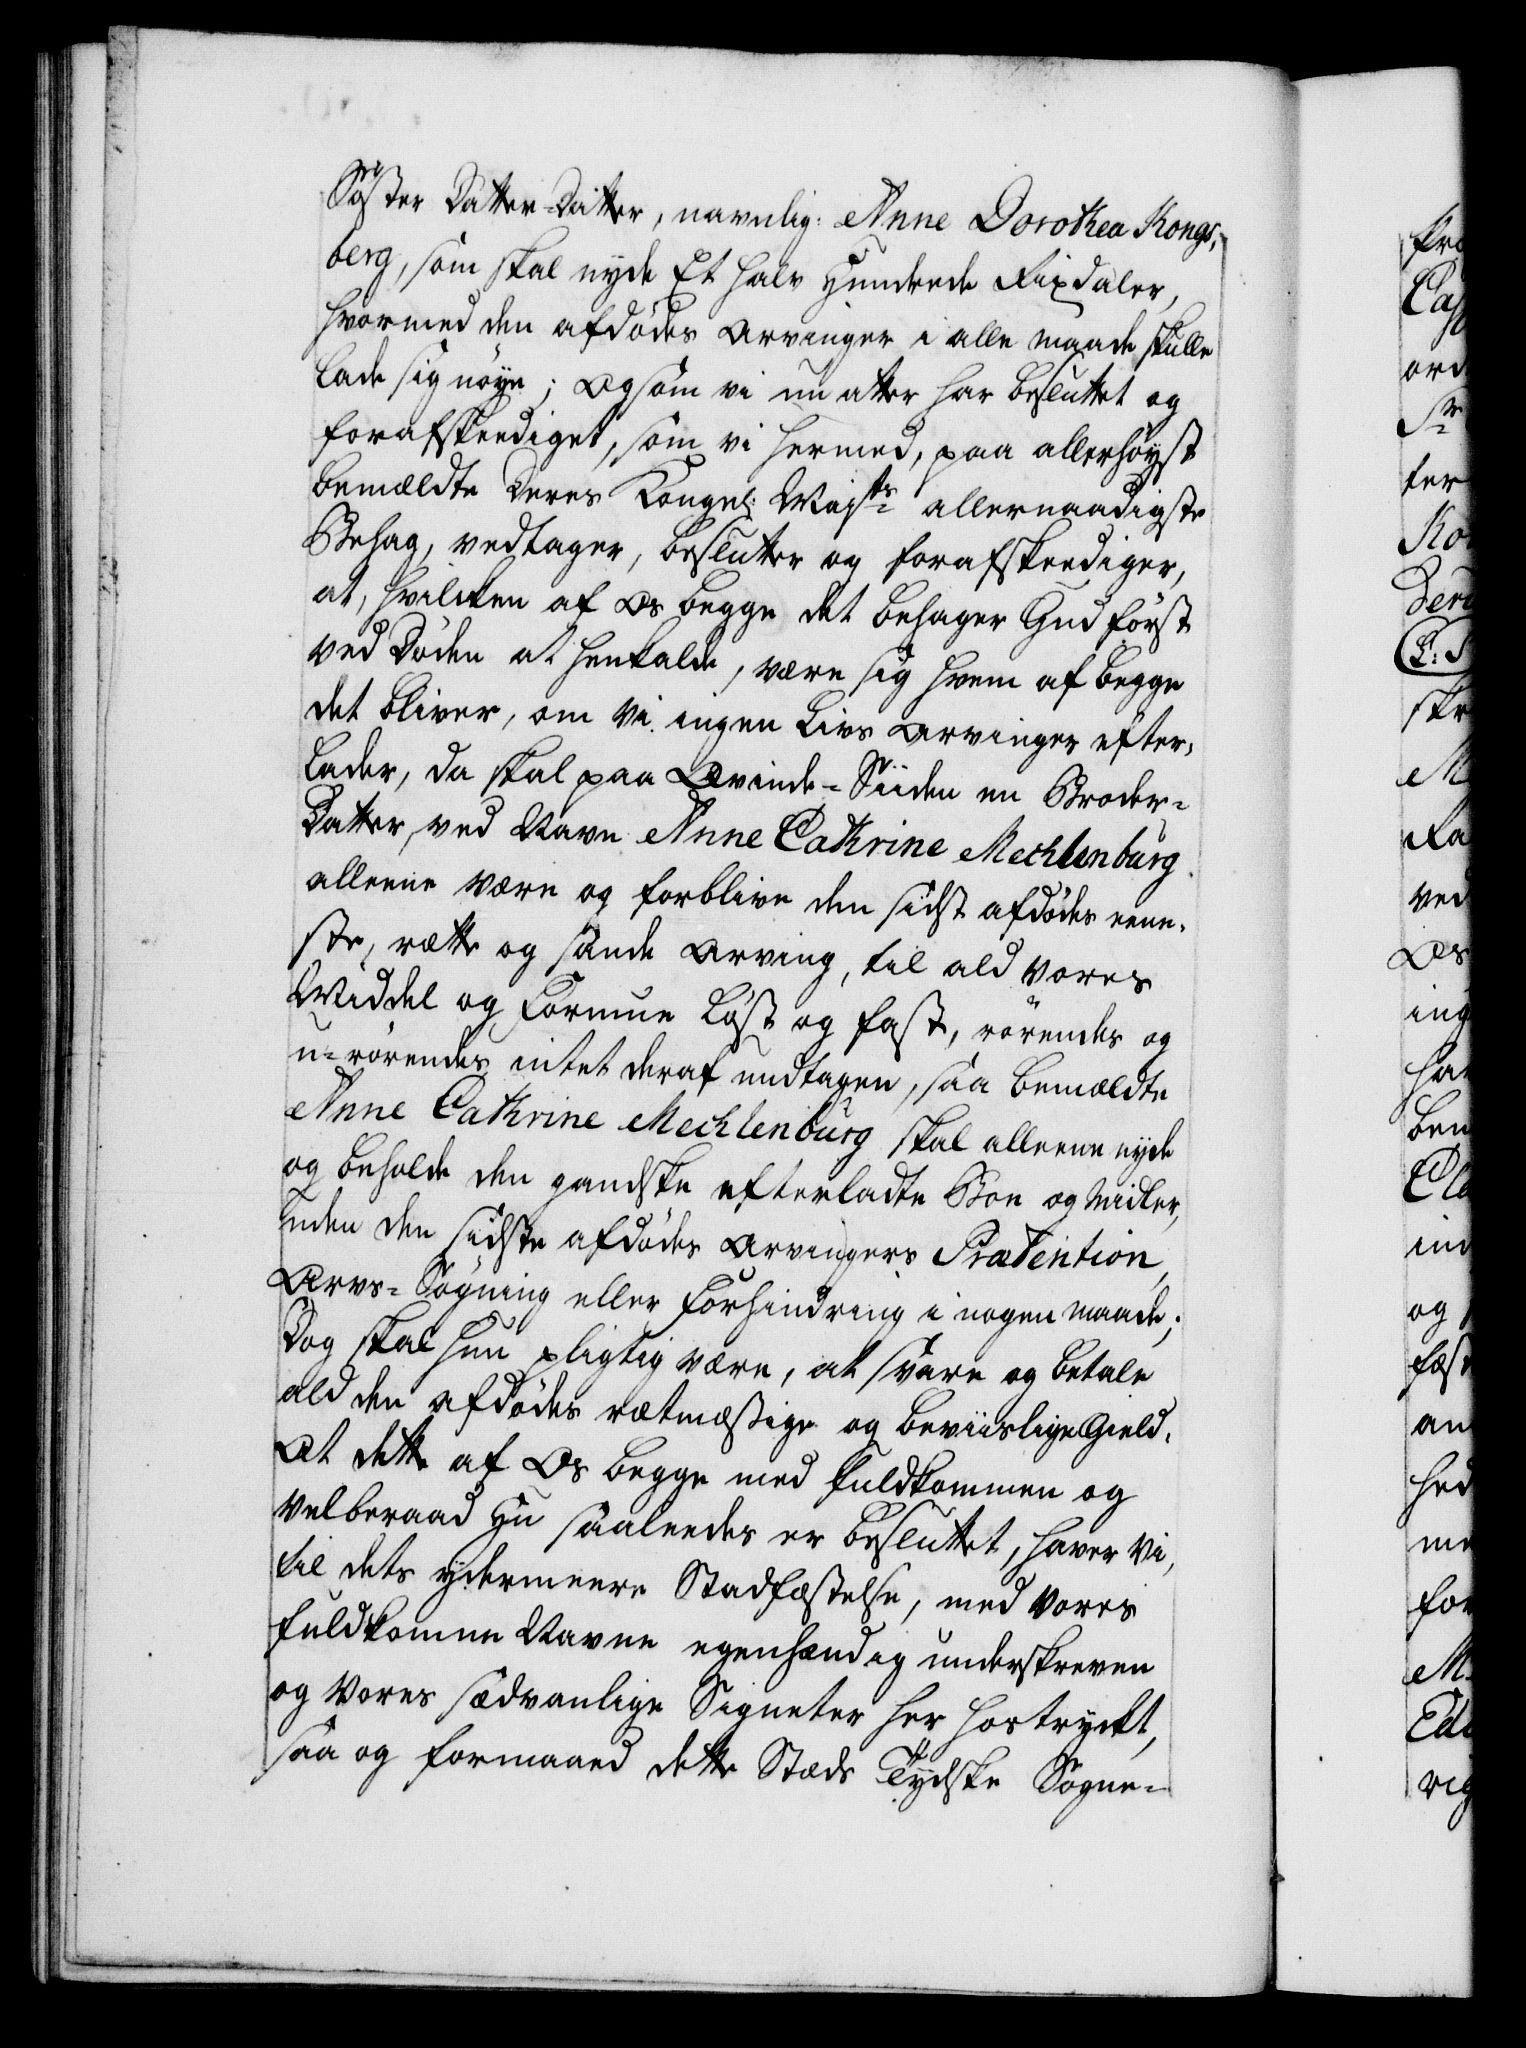 Søster Datter-Datter, navnlig: Anne Dorothea Kongs,
berg, som skal nyde Et halv Hundrede Rixdaler,
hvormed den afdødes Arvinger i alle maade skulle
lade sig nøye; Og som vi nu atter har besluttet og
forafskeediget, som vi hermed, paa allerhøyst
bemældte Deres Kongel: Majts allernaadigste
Behag, vedtager, beslutter og forafskeediger,
at, hvilcken af Os begge det behager Gud først
ved Døden at henkalde, være sig hvem af begge
det bliver, om Vi ingen Livs Arvinger efter,
lader, da skal paa Qvinde-Siiden en Broder-
Datter, ved Navn Anne Cathrine Mechlenburg
alleene være og forblive den sidst afdødes eene,
ste, rette og sande Arving, til ald vores
Middel og Formue Løst og fast, rørendes og
u-rørendes intet deraf undtagen, saa bemældte
Anne Cathrine Mechlenburg skal alleene nyde
og beholde den gandske efterladte Boe og Midler,
uden den sidste afdødes Arvingers Prætention,
Arvs-Søgning eller Forhindring i nogen maade;
Dog skal hun pligtig være, at svare og betale
ald den afdødes rætmæssige og beviislige Gield.
At dette af Os begge med fuldkommen og
velberaad Hu saaleedes er besluttet, haver Vi,
til dets ydermeere Stadfæstelse, med vores
fuldkomne Navne egenhændig underskreven
og Vores sædvanlige Signeter her hostryckt,
saa og formaaed dette Stæds Tydske Sogne-